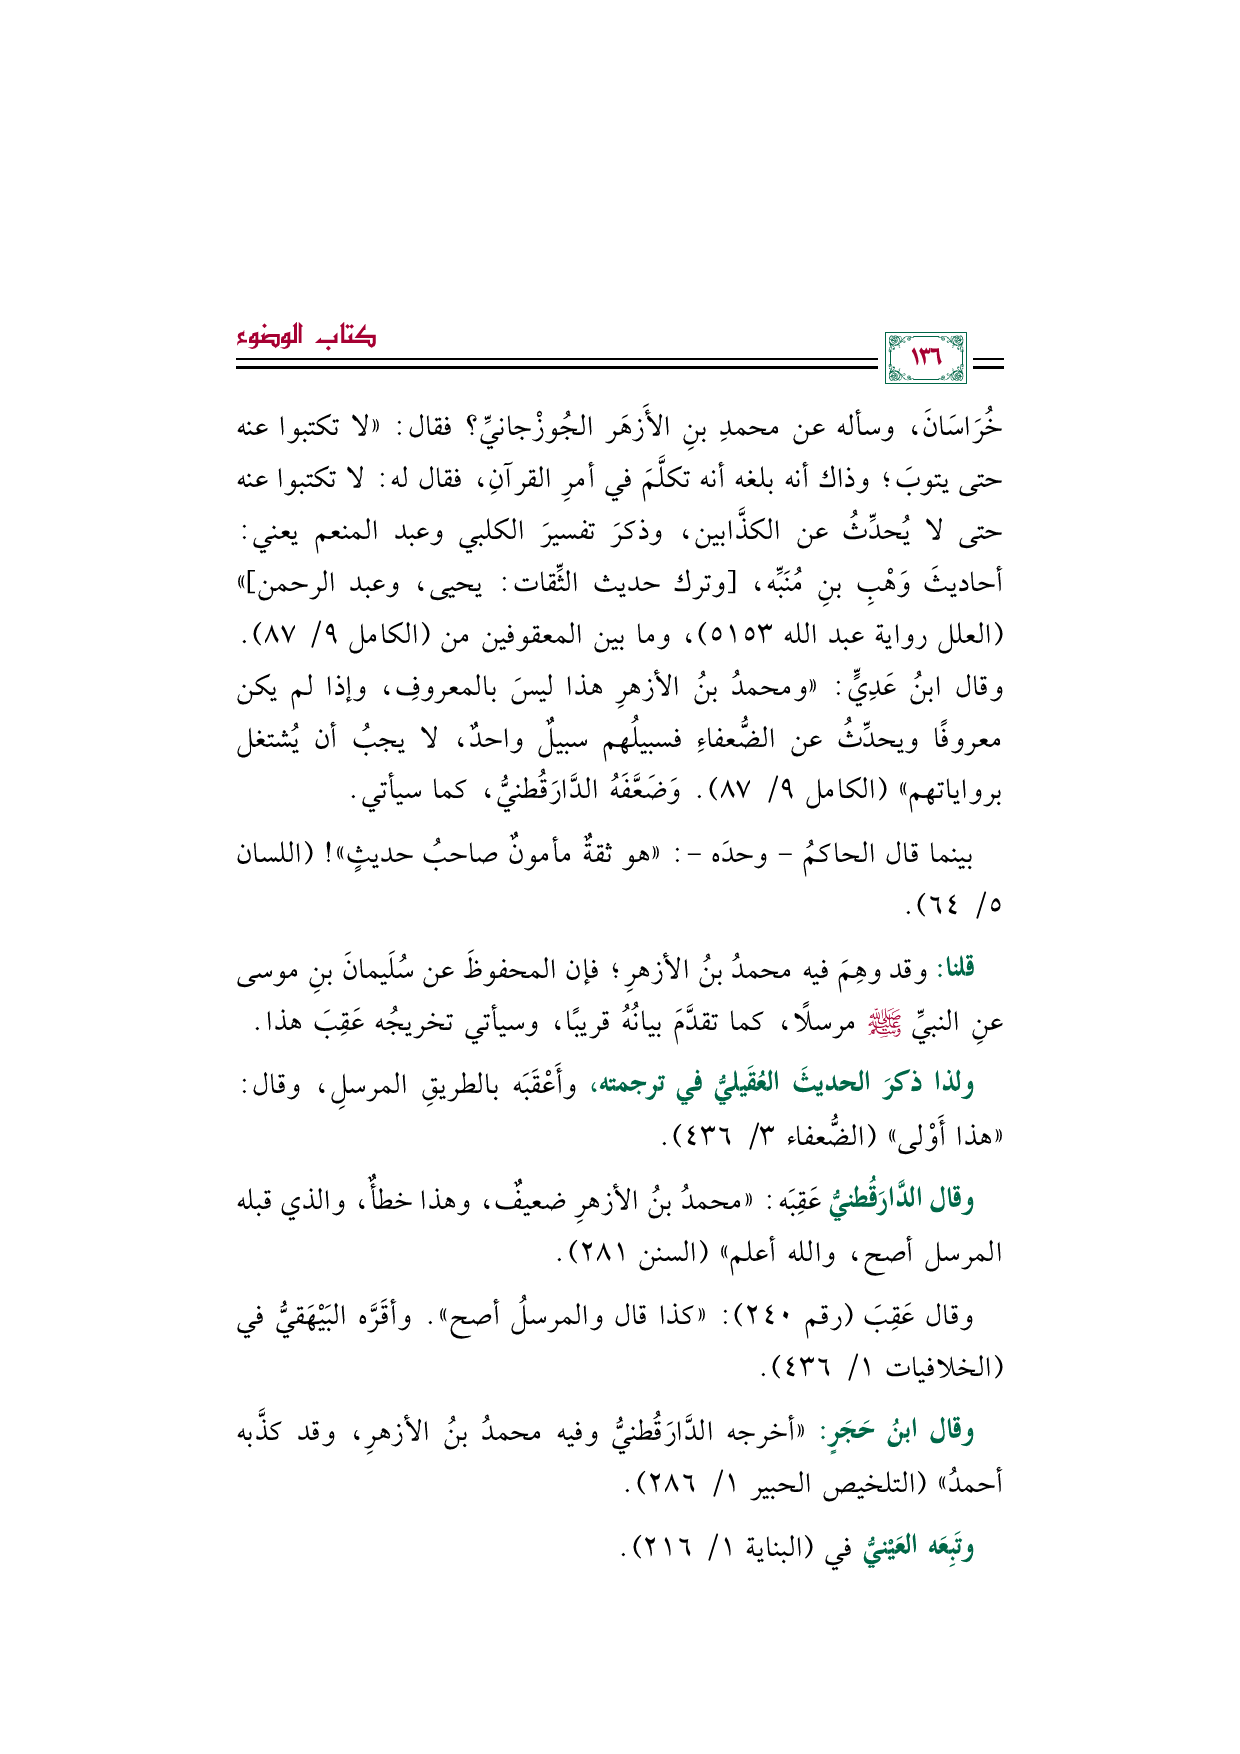 كتاب الوضوء
١٣٦
خُرَاسَانَ، وسأله عن محمدِ بنِ الأَزهَر الجُوزْجانيِّ؟ فقال: «لا تكتبوا عنه
حتى يتوبَ؛ وذاك أنه بلغه أنه تكلَّمَ في أمرِ القرآنِ، فقال له: لا تكتبوا عنه
حتى لا يُحدِّثُ عن الكذَّابين، وذكرَ تفسيرَ الكلبي وعبد المنعم يعني:
أحاديثَ وَهْبِ بنِ مُنَبِّه، [وترك حديث الثِّقات: يحيى، وعبد الرحمن]»
(العلل رواية عبد الله ٥١٥٣)، وما بين المعقوفين من (الكامل ٩/ ٨٧).
وقال ابنُ عَدِيٍّ: «ومحمدُ بنُ الأزهرِ هذا ليسَ بالمعروفِ، وإذا لم يكن
معروفًا ويحدِّثُ عن الضُّعفاءِ فسبيلُهم سبيلٌ واحدٌ، لا يجبُ أن يُشتغل
برواياتهم» (الكامل ٩/ ٨٧). وَضَعَّفَهُ الدَّارَقُطنيُّ، كما سيأتي.
بينما قال الحاكمُ – وحدَه –: «هو ثقةٌ مأمونٌ صاحبُ حديثٍ»! (اللسان
٥/ ٦٤).
قلنا: وقد وهِمَ فيه محمدُ بنُ الأزهرِ؛ فإن المحفوظَ عن سُلَيمانَ بنِ موسى
عنِ النبيِّ ﷺ مرسلًا، كما تقدَّمَ بيانُهُ قريبًا، وسيأتي تخريجُه عَقِبَ هذا.
ولذا ذكرَ الحديثَ العُقَيليُّ في ترجمته، وأَعْقَبَه بالطريقِ المرسلِ، وقال:
«هذا أَوْلى» (الضُّعفاء ٣/ ٤٣٦).
وقال الدَّارَقُطنيُّ عَقِبَه: «محمدُ بنُ الأزهرِ ضعيفٌ، وهذا خطأٌ، والذي قبله
المرسل أصح، والله أعلم» (السنن ٢٨١).
وقال عَقِبَ (رقم ٢٤٠): «كذا قال والمرسلُ أصح». وأقَرَّه البَيْهَقيُّ في
(الخلافيات ١/ ٤٣٦).
وقال ابنُ حَجَرٍ: «أخرجه الدَّارَقُطنيُّ وفيه محمدُ بنُ الأزهرِ، وقد كذَّبه
أحمدُ» (التلخيص الحبير ١/ ٢٨٦).
وتَبِعَه العَيْنيُّ في (البناية ١/ ٢١٦).